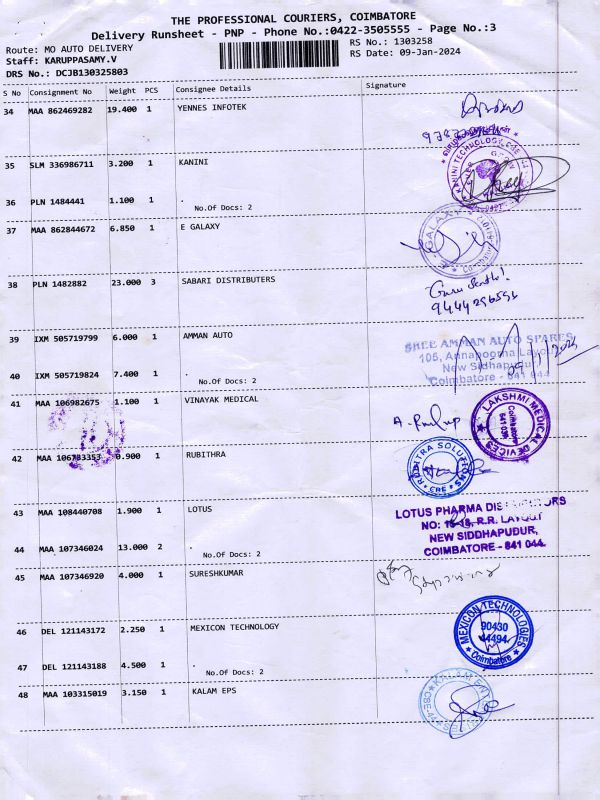 THE PROFESSIONAL COURIERS, COIMBATORE
Delivery Runsheet - PNP - Phone No.:0422-3505555 - Page No.:3
Route: MO AUTO DELIVERY RS No.: 1303258
Staff: KARUPPASAMY.V RS Date: 09-Jan-2024
DRS No.: DCJB130325803
S No Consignment No Weight PCS Consignee Details Signature
34 MAA 862469282 19.400 1 YENNES INFOTEK
35 SLM 336986711 3.200 1 KANINI
KANINI TECHNOLOGY
36 PLN 1484441 1.100 1 .
No.Of Docs: 2
37 MAA 862844672 6.850 1 E GALAXY
GALAXY
38 PLN 1482882 23.000 3 SABARI DISTRIBUTERS
9444296591
39 IXM 505719799 6.000 1 AMMAN AUTO
SREE AMMAN AUTO SPARES
105, Annapoorna Layout
New Siddhapudur
Coimbatore - 641 044
09/1/2024
40 IXM 505719824 7.400 1 .
No.Of Docs: 2
41 MAA 106982675 1.100 1 VINAYAK MEDICAL
LAKSHMI MEDICAL DEVICES
Coimbatore
42 MAA 106733353 0.900 1 RUBITHRA
SOLUTIONS
CBE
43 MAA 108440708 1.900 1 LOTUS
LOTUS PHARMA DISTRIBUTORS
NO: 16-18, R.R. LAYOUT
NEW SIDDHAPUDUR,
COIMBATORE - 641 044.
44 MAA 107346024 13.000 2 .
No.Of Docs: 2
45 MAA 107346920 4.000 1 SURESHKUMAR
46 DEL 121143172 2.250 1 MEXICON TECHNOLOGY
MEXICON TECHNOLOGIES
90430
44494
Coimbatore
47 DEL 121143188 4.500 1 .
No.Of Docs: 2
48 MAA 103315019 3.150 1 KALAM EPS